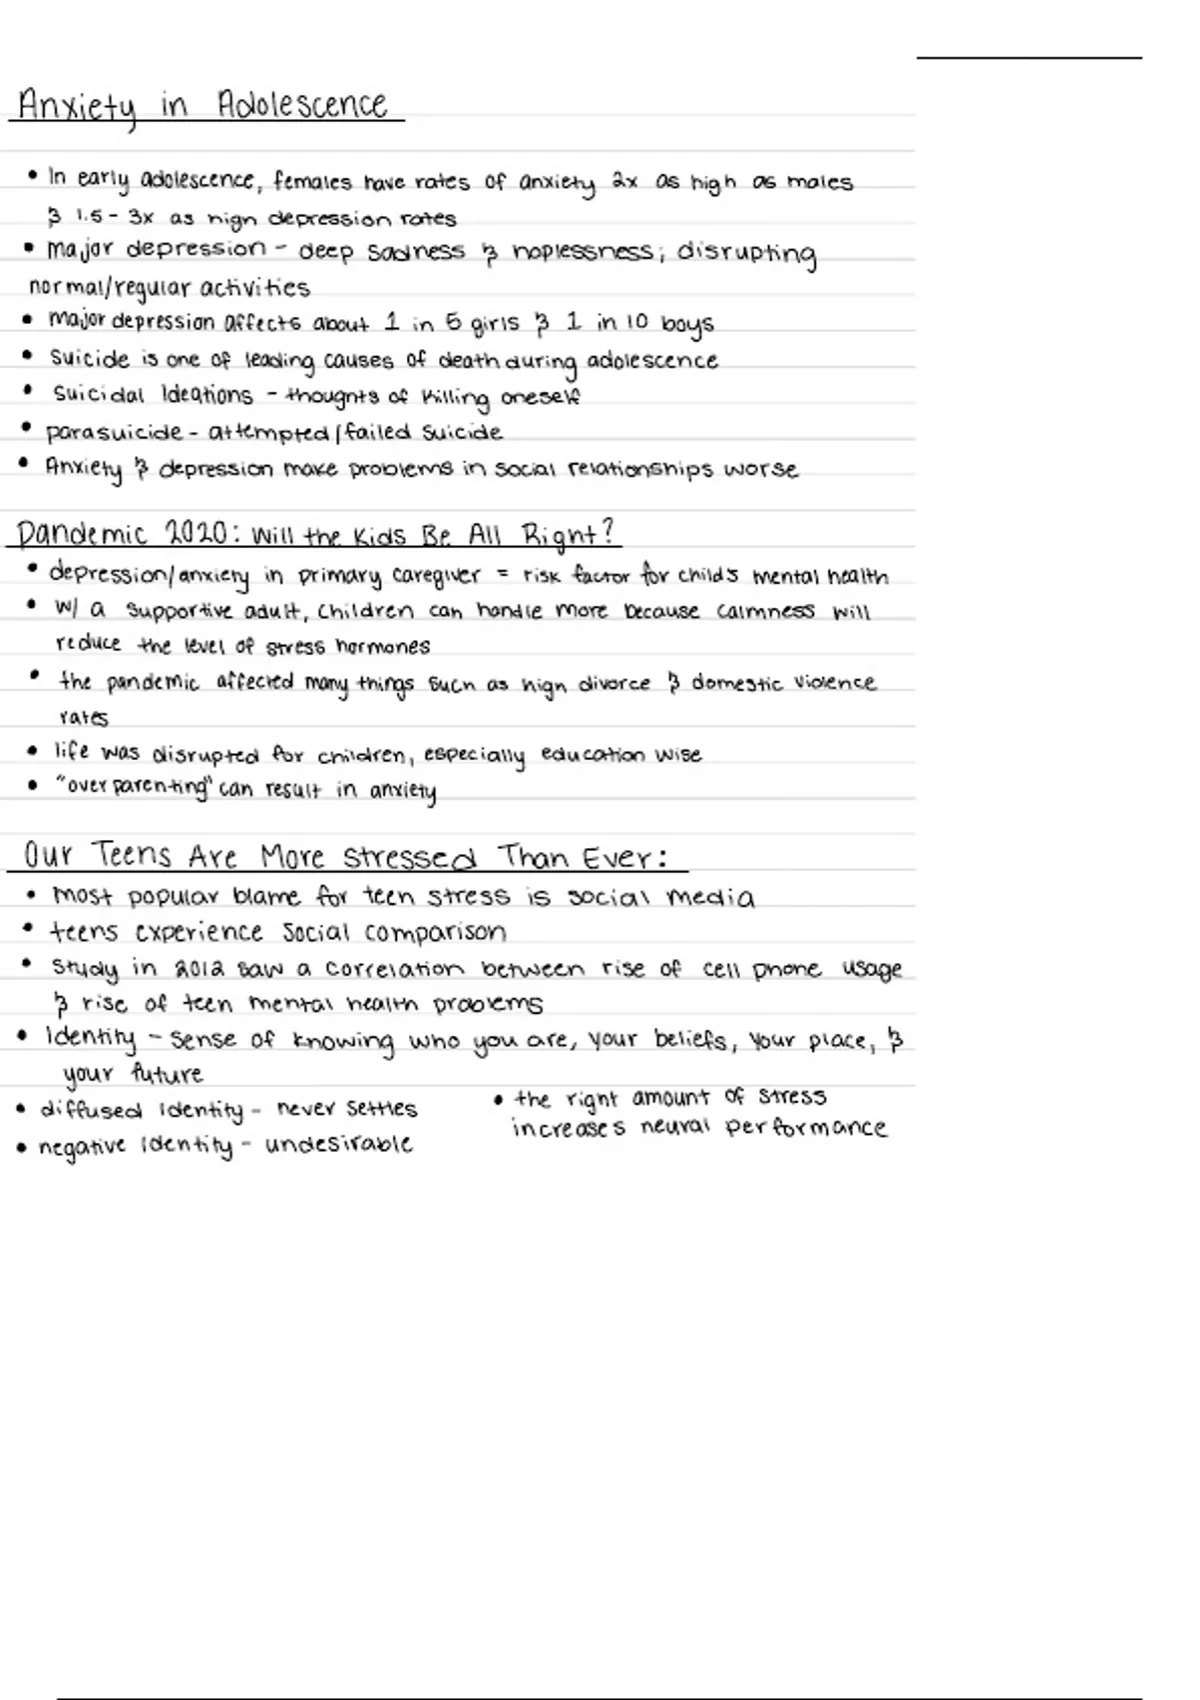 Anxiety in Adolescence
• In early adolescence, females have rates of anxiety 2x as high as males
& 1.5 - 3x as high depression rates
• major depression - deep sadness & hoplessness; disrupting
normal/regular activities
• major depression affects about 1 in 5 girls & 1 in 10 boys
• suicide is one of leading causes of death during adolescence
• suicidal Ideations - thoughts of killing oneself
• parasuicide - attempted/failed suicide
• Anxiety & depression make problems in social relationships worse
Pandemic 2020: Will the Kids Be All Right?
• depression/anxiety in primary caregiver = risk factor for child's mental health
• w/ a supportive adult, children can handle more because calmness will
reduce the level of stress hormones
• the pandemic affected many things such as high divorce & domestic violence
rates
• life was disrupted for children, especially education wise
• "over parenting" can result in anxiety
Our Teens Are More Stressed Than Ever:
• most popular blame for teen stress is social media
• teens experience social comparison
• study in 2012 saw a correlation between rise of cell phone usage
& rise of teen mental health problems
• Identity - sense of knowing who you are, your beliefs, your place, &
your future
• diffused identity - never settles
• negative identity - undesirable
• the right amount of stress
increases neural performance